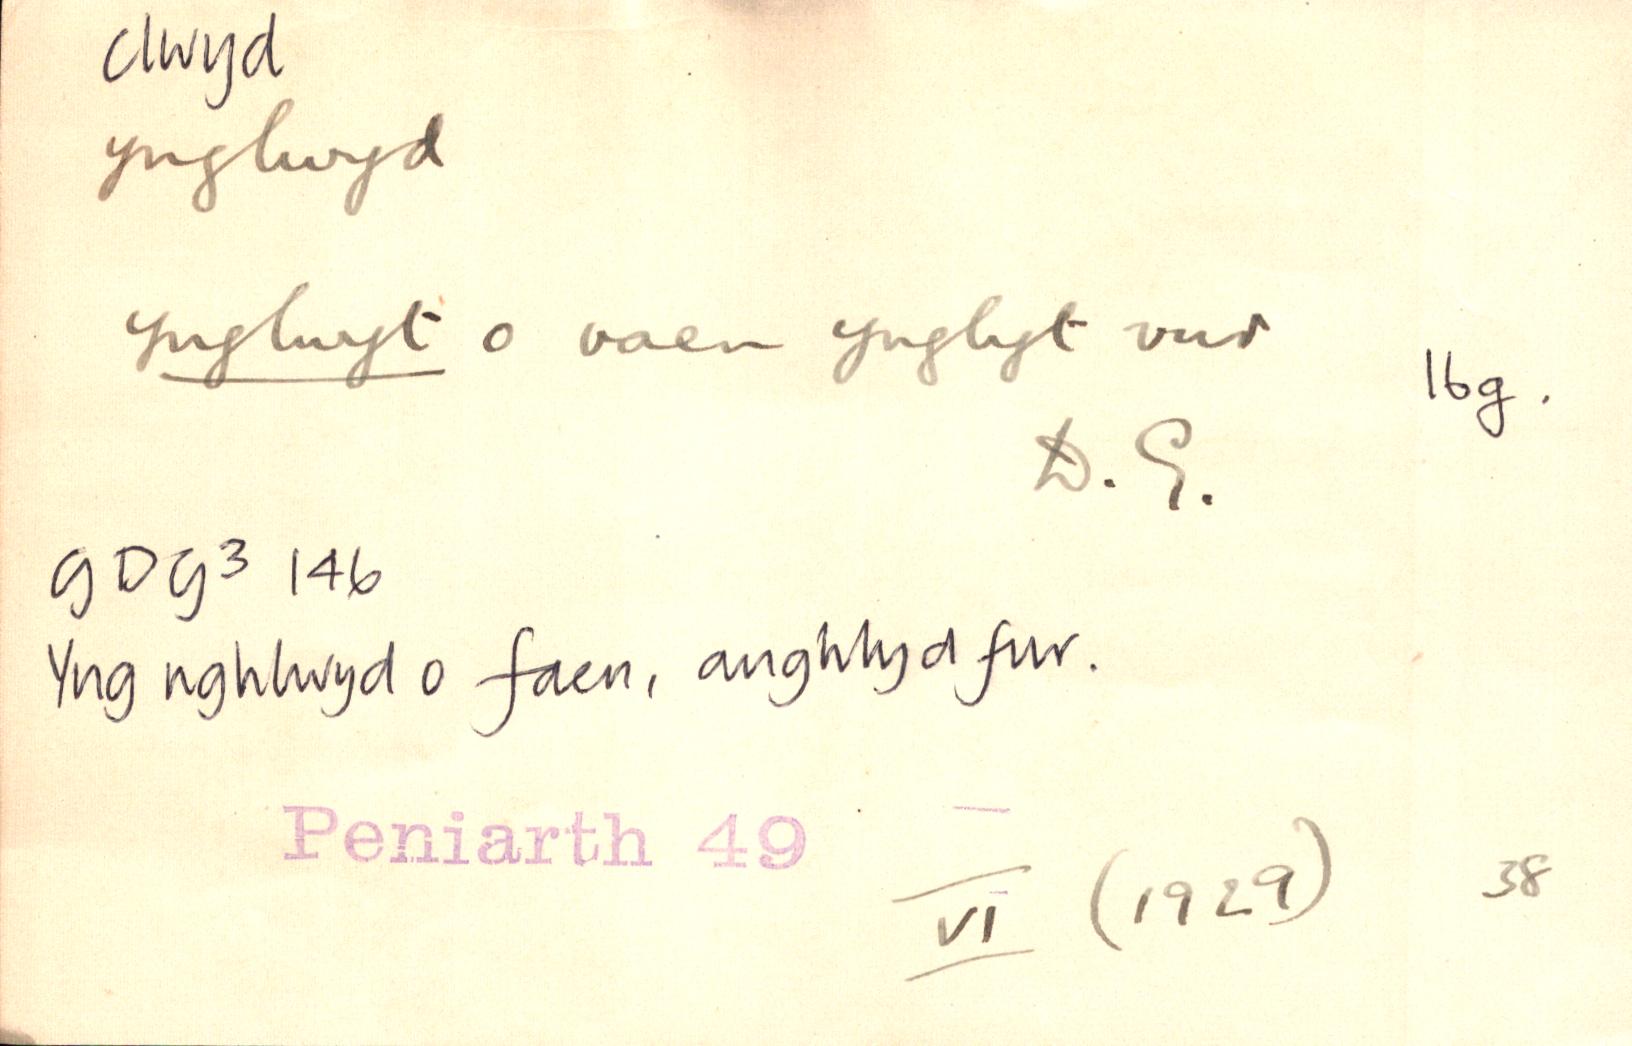 clwyd
ynglwyd
ynglwyt o vaen ynglyt vur
16g.
D. G.
GDG³ 146
Yng nghlwyd o faen, anghlyd fur.
Peniarth 49
VI (1929) 38